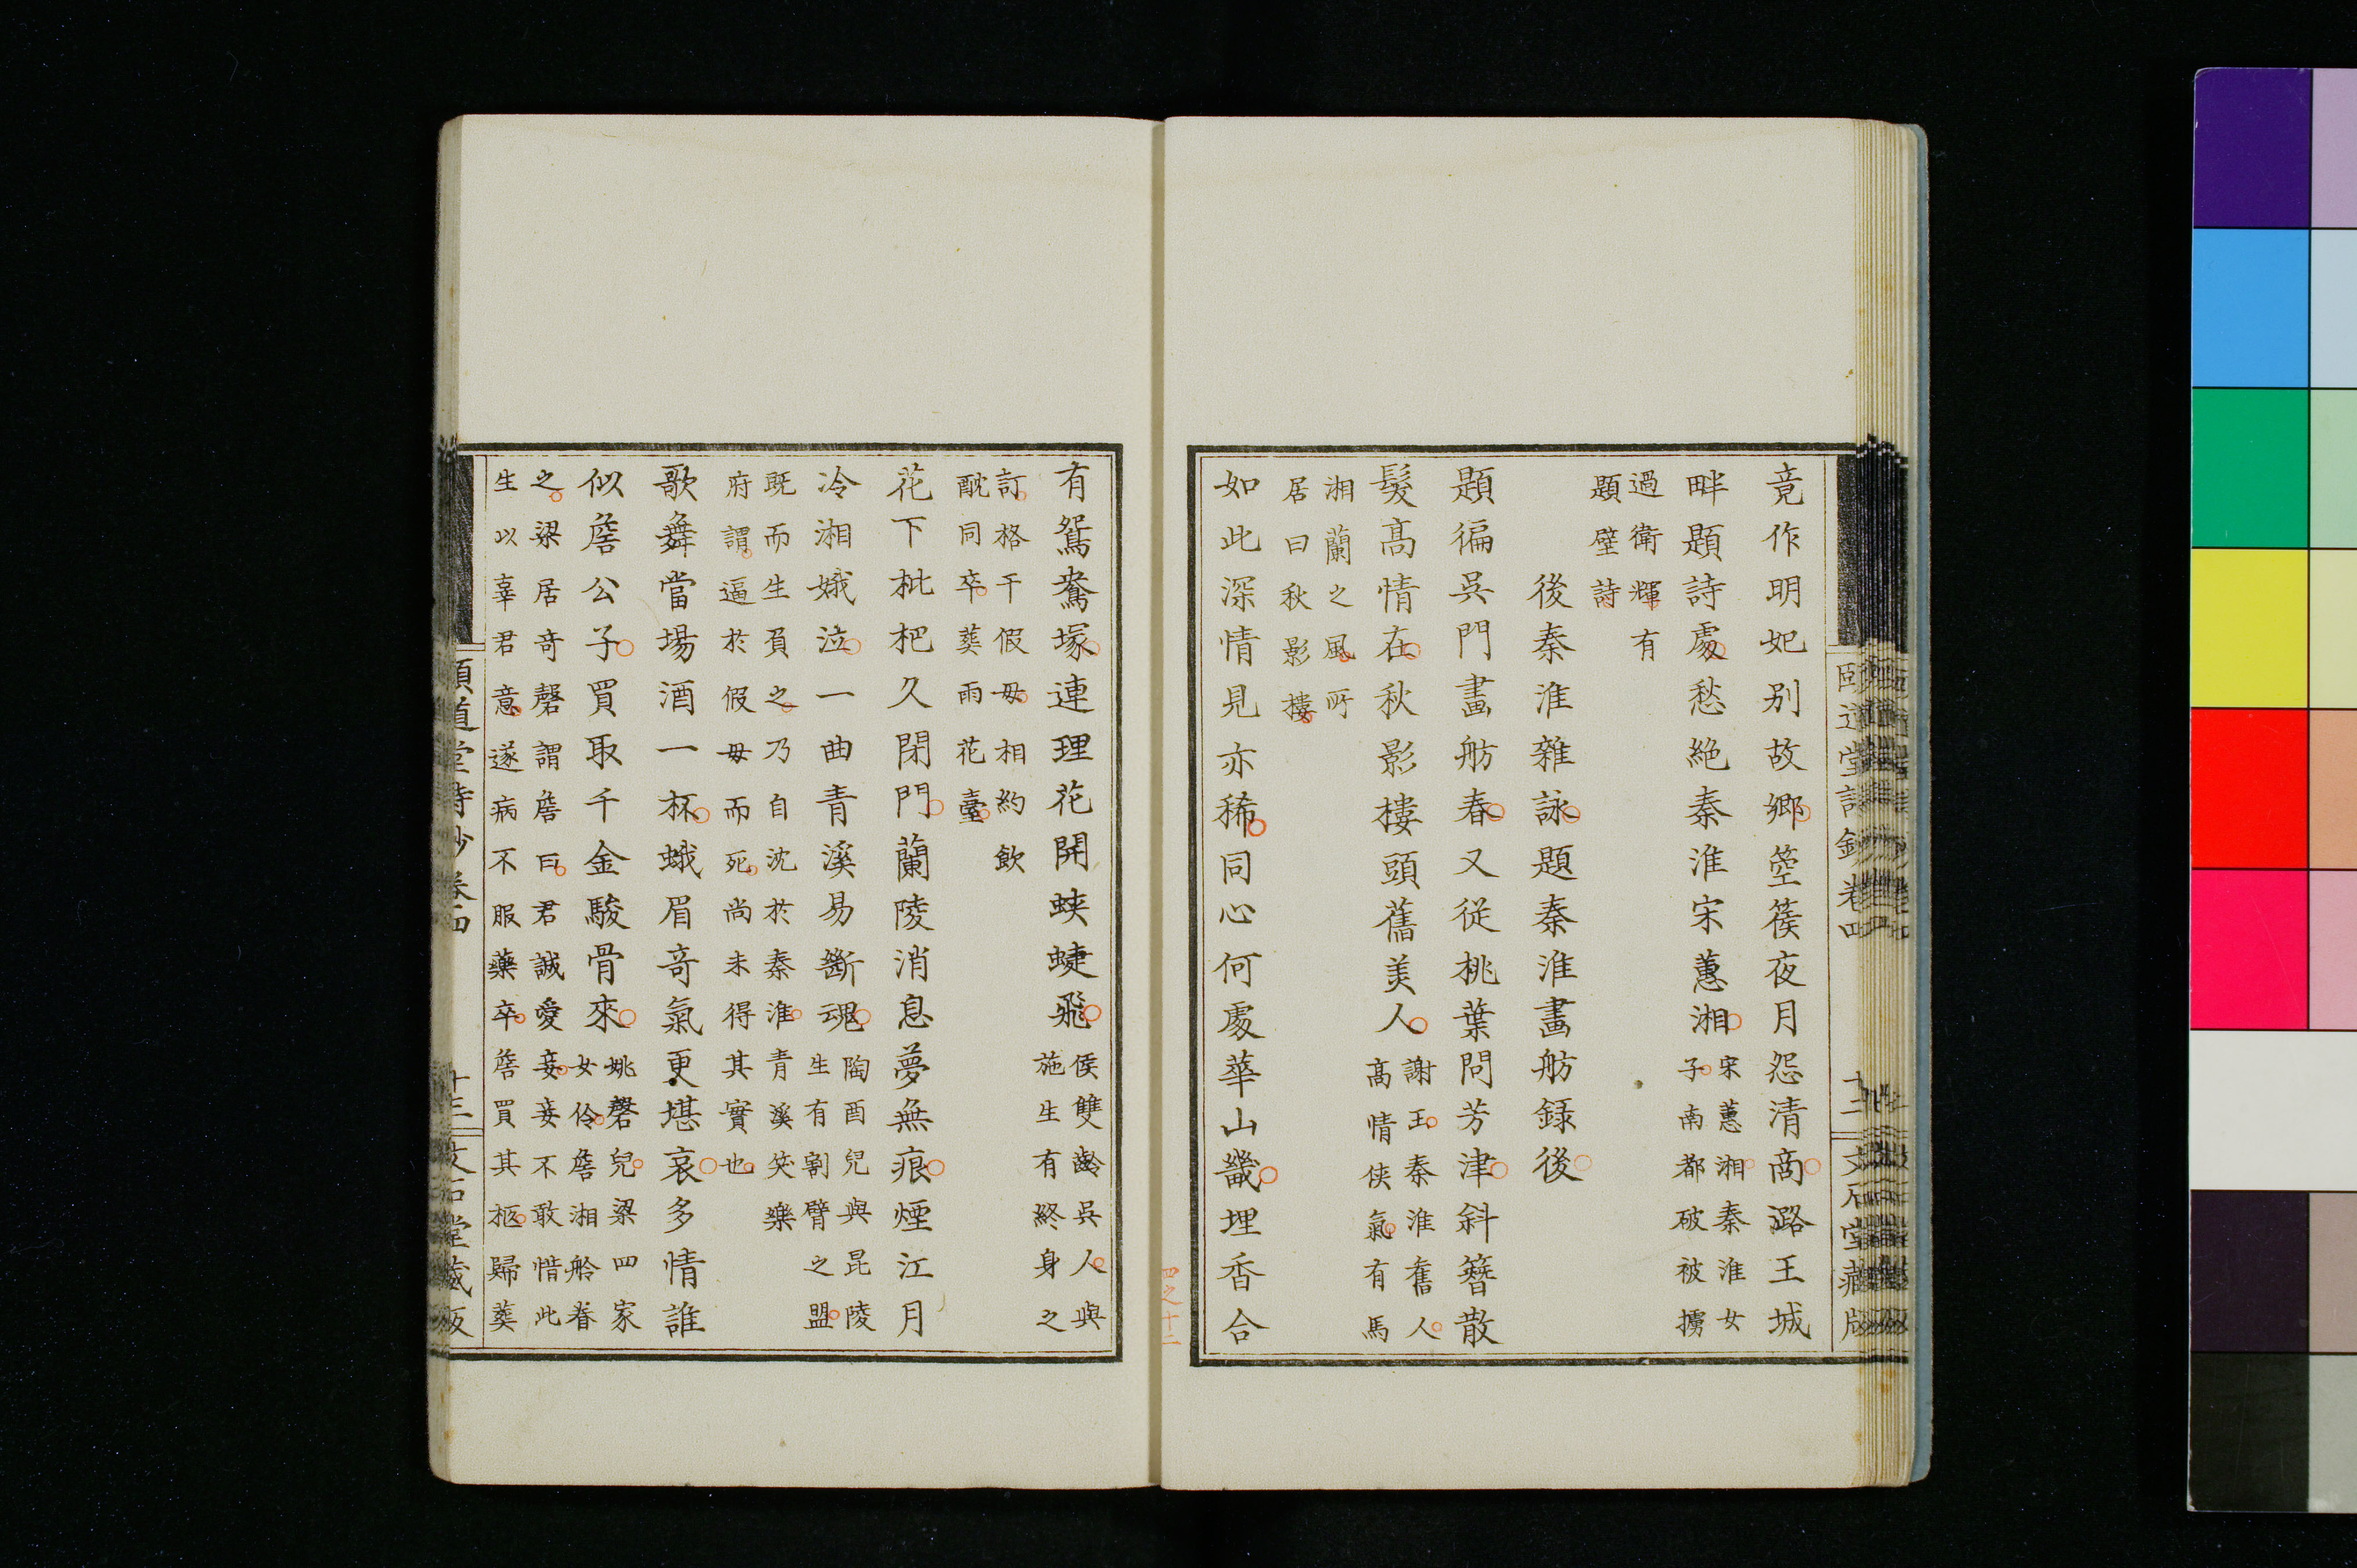 竟作明妃別故鄉箜篌夜月怨清商潞王城
畔題詩處愁絶秦淮宋蕙湘
宋蕙湘秦淮女
子南都破被擄
過衛輝有
題壁詩
後秦淮雜詠題秦淮畫舫録後
題徧吳門畫舫春又從桃葉問芳津斜簪散
髮高情在秋影樓頭舊美人
謝玉秦淮舊人
高情俠氣有馬
湘蘭之風所
居曰秋影樓
如此深情見亦稀同心何處華山畿埋香合
四之十二
有鴛鴦塚連理花開蛺蜨飛
侯雙齡吳人與
施生有終身之
訂格干假母相約飲
酖同卒葬雨花臺
花下枇杷久閉門蘭陵消息夢無痕煙江月
冷湘娥泣一曲青溪易斷魂
陶酉兒與昆陵
生有割臂之盟
既而生負之乃自沈於秦淮青溪笑樂
府謂逼於假母而死尚未得其實也
歌舞當場酒一杯蛾眉奇氣更堪哀多情誰
似詹公子買取千金駿骨來
姚磬兒梁四家
女伶詹湘舲眷
之梁居奇磬謂詹曰君誠愛妾妾不敢惜此
生以辜君意遂病不服藥卒詹買其柩歸葬
頤道堂詩鈔卷四
十三
文石堂藏版